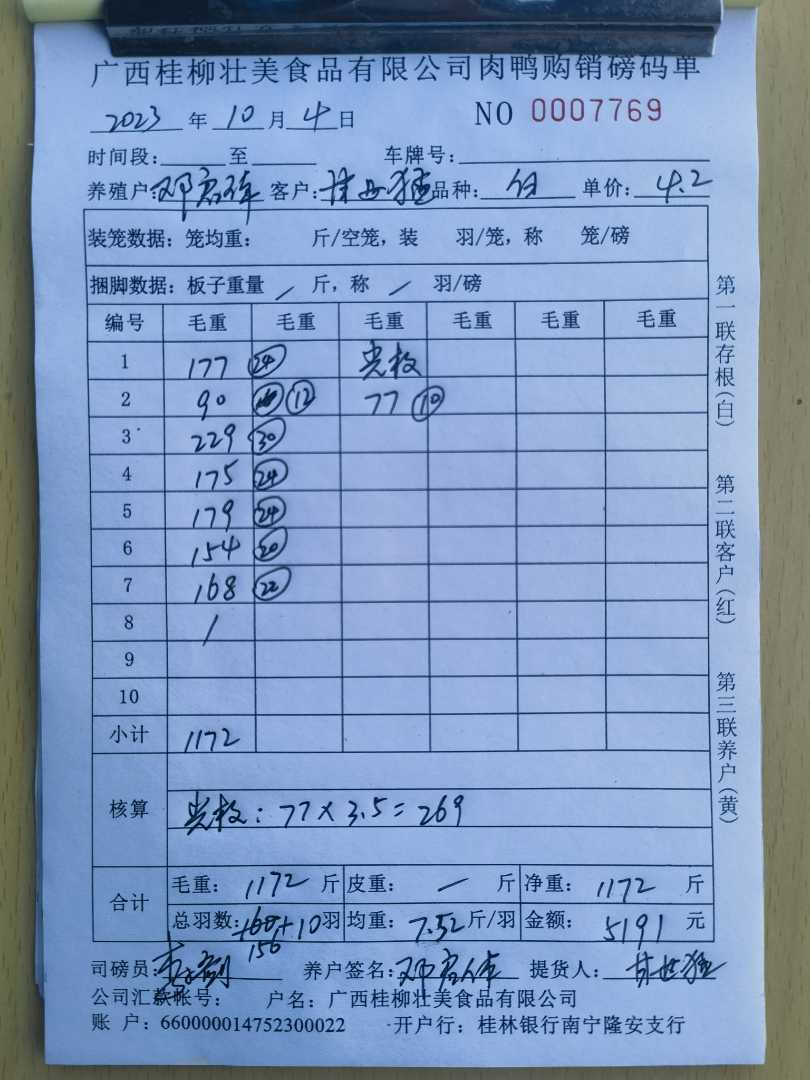 广西桂柳壮美食品有限公司肉鸭购销磅码单
2023 年 10 月 4 日 NO 0007769
时间段: 至 车牌号:
养殖户: 邓 客户: 甘 品种: 白 单价: 4.2
装笼数据: 笼均重: 斤/空笼, 装 羽/笼, 称 笼/磅
捆脚数据: 板子重量 / 斤, 称 / 羽/磅
编号 毛重 毛重 毛重 毛重 毛重 毛重
1 177 24
2 90 12 77 10
3 229 30
4 175 24
5 179 24
6 154 20
7 168 22
8 /
9
10
小计 1172
核算
77×3.5=269
合计
毛重: 1172 斤 皮重: — 斤 净重: 1172 斤
总羽数: 156 +10 羽 均重: 7.52 斤/羽 金额: 5191 元
司磅员: 养户签名: 邓 提货人: 甘
公司汇款帐号: 户名: 广西桂柳壮美食品有限公司
账 户: 660000014752300022 开户行: 桂林银行南宁隆安支行
第一联存根(白)
第二联客户(红)
第三联养户(黄)